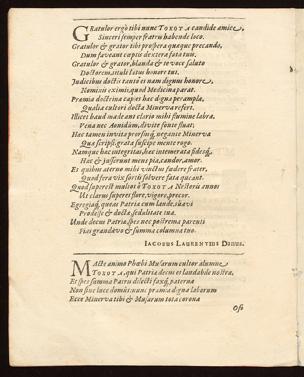 Gratulor ergò tibi nunc TOXOTA candide amice,
Sinceri semper fratris habende loco.
Gratulor & grator tibi prospera quæque precando,
Dum faveant captis dextera fata tuis.
Gratulor & grator, blanda & te voce saluto
Doctorem, tituli latus honore tui.
Judicibus doctis tanto es nam dignus honore,
Nominis eximii, quod Medicina parat.
Præmia doctrinæ capies hac digna perampla,
Qualia cultori docta Minerva refert.
Illicet haud madeant clario mihi flumine labra,
Vena nec Aonidum, divite fonte fluat.
Hac tamen invita prorsusq, negante Minerva
Quæ scripsi, grata suscipe mente rogo.
Namque hac integritas, hac intemerata fidesq,
Hac & jusserunt mens pia, candor, amor.
Et quibus æterno mihi vinctus fœdere frater,
Quod fera vix fortis solvere fata queant.
Quod superest multos ô TOXOTA Nestoris annos
Ut clarus superes flore, vigore, precor.
Egregiusq, queas Patria cum laude, suavi
Prodesse & docta, sedulitate tua.
Unde decus Patria, spes nec postrema parentis
Fias grandævo & summa columna tuo.
IACOBUS LAURENTIUS
Macte animo Phœbi Musarum cultor alumne
TOXOTA, qui Patria decus es laudabile nostra,
Et spes summa Patris dilecti faxq, paterna
Non sine luce domus: nunc præmia digna laborum
Ecce Minerva tibi & Musarum tota corona